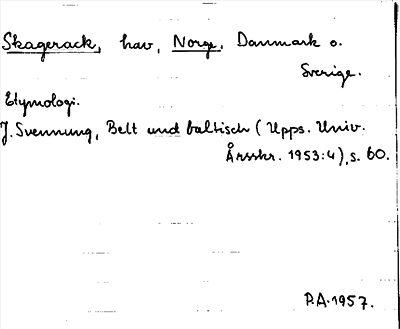 Skagerack, hav, Norge, Danmark o.
Sverige.
Etymologi.
J. Svennung, Belt und baltisch (Upps. Univ.
Årsskr. 1953:4), s. 60.
P.A. 1957.